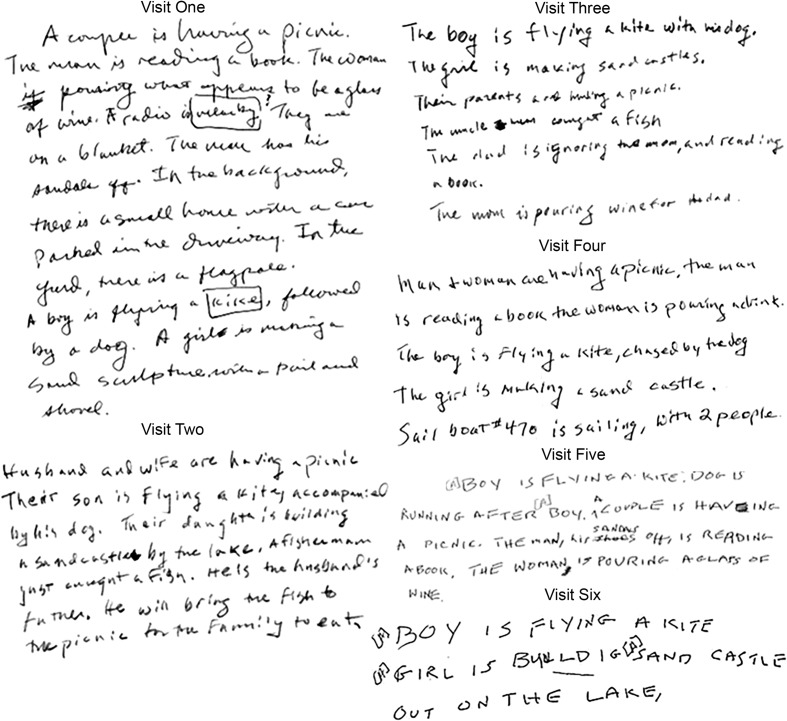 Visit One
A couple is having a picnic.
The man is reading a book. The woman
is pouring what appears to be a glass
of wine. A radio is nearby? They are
on a blanket. The man has his
sandals off. In the background,
there is a small house with a car
parked in the driveway. In the
yard, there is a flagpole.
A boy is flying a kike, followed
by a dog. A girl is making a
sand sculpture with a pail and
shovel.
Visit Two
Husband and wife are having a picnic
Their son is flying a kite, accompanied
by his dog. Their daughter is building
a sandcastle by the lake. A fisherman
just caught a fish. He is the husband's
father. He will bring the fish to
the picnic for the family to eat.
Visit Three
The boy is flying a kite with his dog.
The girl is making sand castles.
Their parents are having a picnic.
The uncle caught a fish
The dad is ignoring the mom, and reading
a book.
The mom is pouring wine for the dad.
Visit Four
Man + woman are having a picnic, the man
is reading a book the woman is pouring a drink.
The boy is flying a kite, chased by the dog
The girl is making a sand castle.
Sail boat #470 is sailing, with 2 people.
Visit Five
[A] BOY IS FLYING A KITE. DOG IS
RUNNING AFTER [A] BOY. A COUPLE IS HAVING
A PICNIC. THE MAN, his SANDALS shoes OFF, IS READING
A BOOK. THE WOMAN IS POURING A GLASS OF
WINE.
Visit Six
[A] BOY IS FLYING A KITE
[A] GIRL IS BUILDIG [A] SAND CASTLE
OUT ON THE LAKE,